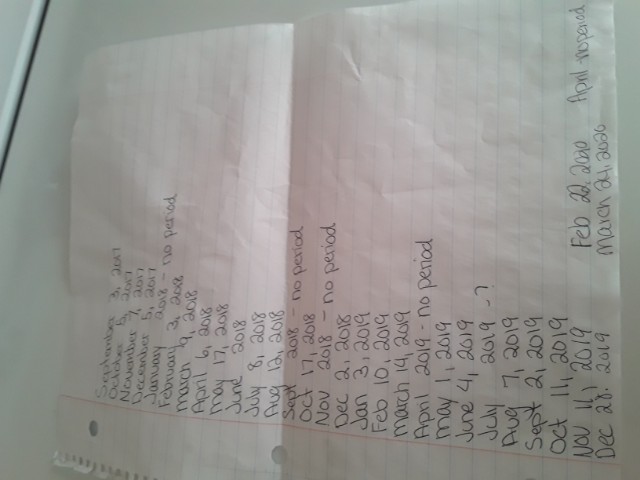 September 3, 2017
October 5, 2017
November 7, 2017
December 5, 2017
January 2018 - no period
February 3, 2018
March 9, 2018
April 6, 2018
May 17, 2018
June 2018
July 8, 2018
Aug 12, 2018
Sept 2018 - no period
Oct 17, 2018
Nov 2018 - no period
Dec 2, 2018
Jan 3, 2019
Feb 10, 2019
March 14, 2019
April 2019 - no period
May 1, 2019
June 4, 2019
July 2019 - ?
Aug 7, 2019
Sept 2, 2019
Oct 11, 2019
Nov 16, 2019
Dec 28, 2019
Feb 22, 2020
March 24, 2020
April - no period